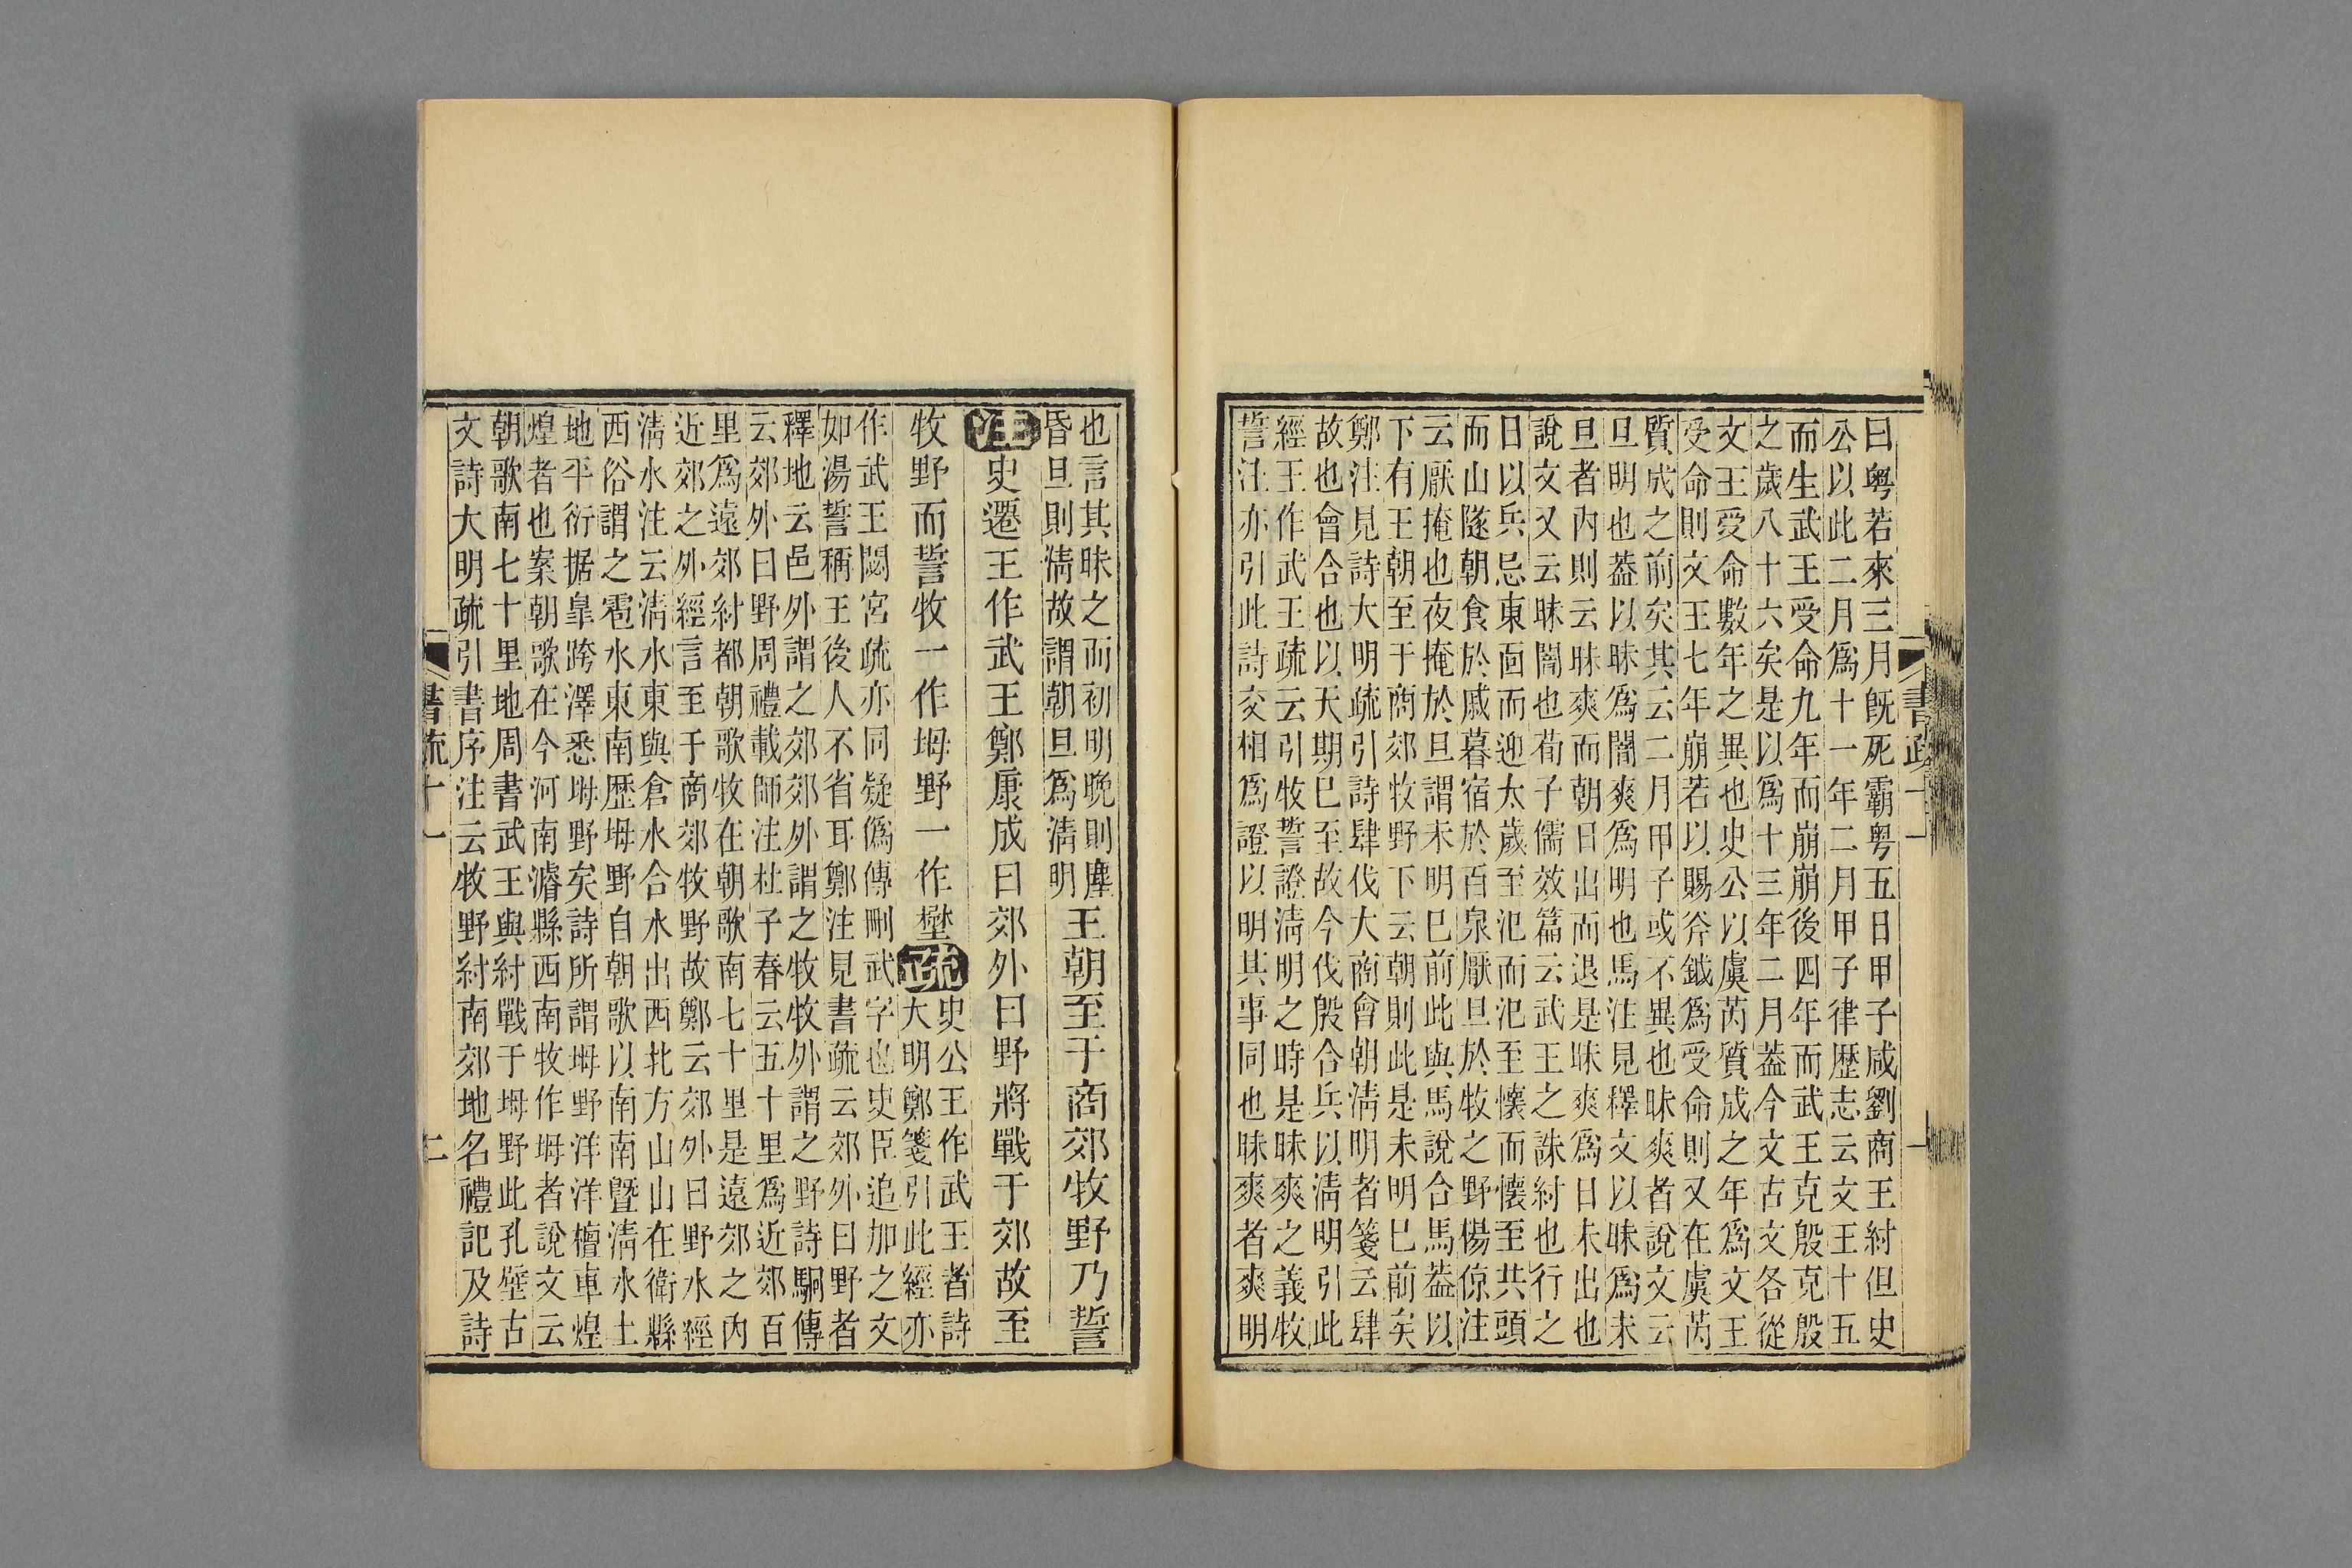 曰粵若來三月旣死霸粵五日甲子咸劉商王紂但史
公以此二月爲十一年二月甲子律歷志云文王十五
而生武王受命九年而崩崩後四年而武王克殷克殷
之歲八十六矣是以爲十三年二月葢今文古文各從
文王受命數年之異也史公以虞芮質成之年爲文王
受命則文王七年崩若以賜斧鉞爲受命則又在虞芮
質成之前矣其云二月甲子或不異也昧爽者說文云
旦明也葢以昧爲闇爽爲明也馬注見釋文以昧爲未
旦者內則云昧爽而朝日出而退是昧爽爲日未出也
說文又云昧闇也荀子儒效篇云武王之誅紂也行之
日以兵忌東面而迎太歲至汜而汜至懷而懷至共頭
而山隧朝食於戚暮宿於百泉厭旦於牧之野楊倞注
云厭掩也夜掩於旦謂未明巳前此與馬說合馬葢以
下有王朝至于商郊牧野下云朝則此是未明巳前矣
鄭注見詩大明疏引詩肆伐大商會朝淸明者箋云肆
故也會合也以天期巳至故今伐殷合兵以淸明引此
經王作武王疏云引牧誓證淸明之時是昧爽之義牧
誓注亦引此詩交相爲證以明其事同也昧爽者爽明
也言其昧之而初明晚則塵
昏旦則淸故謂朝旦爲淸明
王朝至于商郊牧野乃誓
注史遷王作武王鄭康成曰郊外曰野將戰于郊故至
牧野而誓牧一作坶野一作壄疏
史公王作武王者詩
大明鄭箋引此經亦
作武王閟宮疏亦同疑僞傳刪武字也史臣追加之文
如湯誓稱王後人不省耳鄭注見書疏云郊外曰野者
釋地云邑外謂之郊郊外謂之牧牧外謂之野詩駉傳
云郊外曰野周禮載師注杜子春云五十里爲近郊百
里爲遠郊紂都朝歌牧在朝歌南七十里是遠郊之內
近郊之外經言至于商郊牧野故鄭云郊外曰野水經
淸水注云淸水東與倉水合水出西北方山山在衛縣
西俗謂之雹水東南歷坶野自朝歌以南南曁淸水土
地平衍据皐跨澤悉坶野矣詩所謂坶野洋洋檀車煌
煌者也案朝歌在今河南濬縣西南牧作坶者說文云
朝歌南七十里地周書武王與紂戰于坶野此孔壁古
文詩大明疏引書序注云牧野紂南郊地名禮記及詩